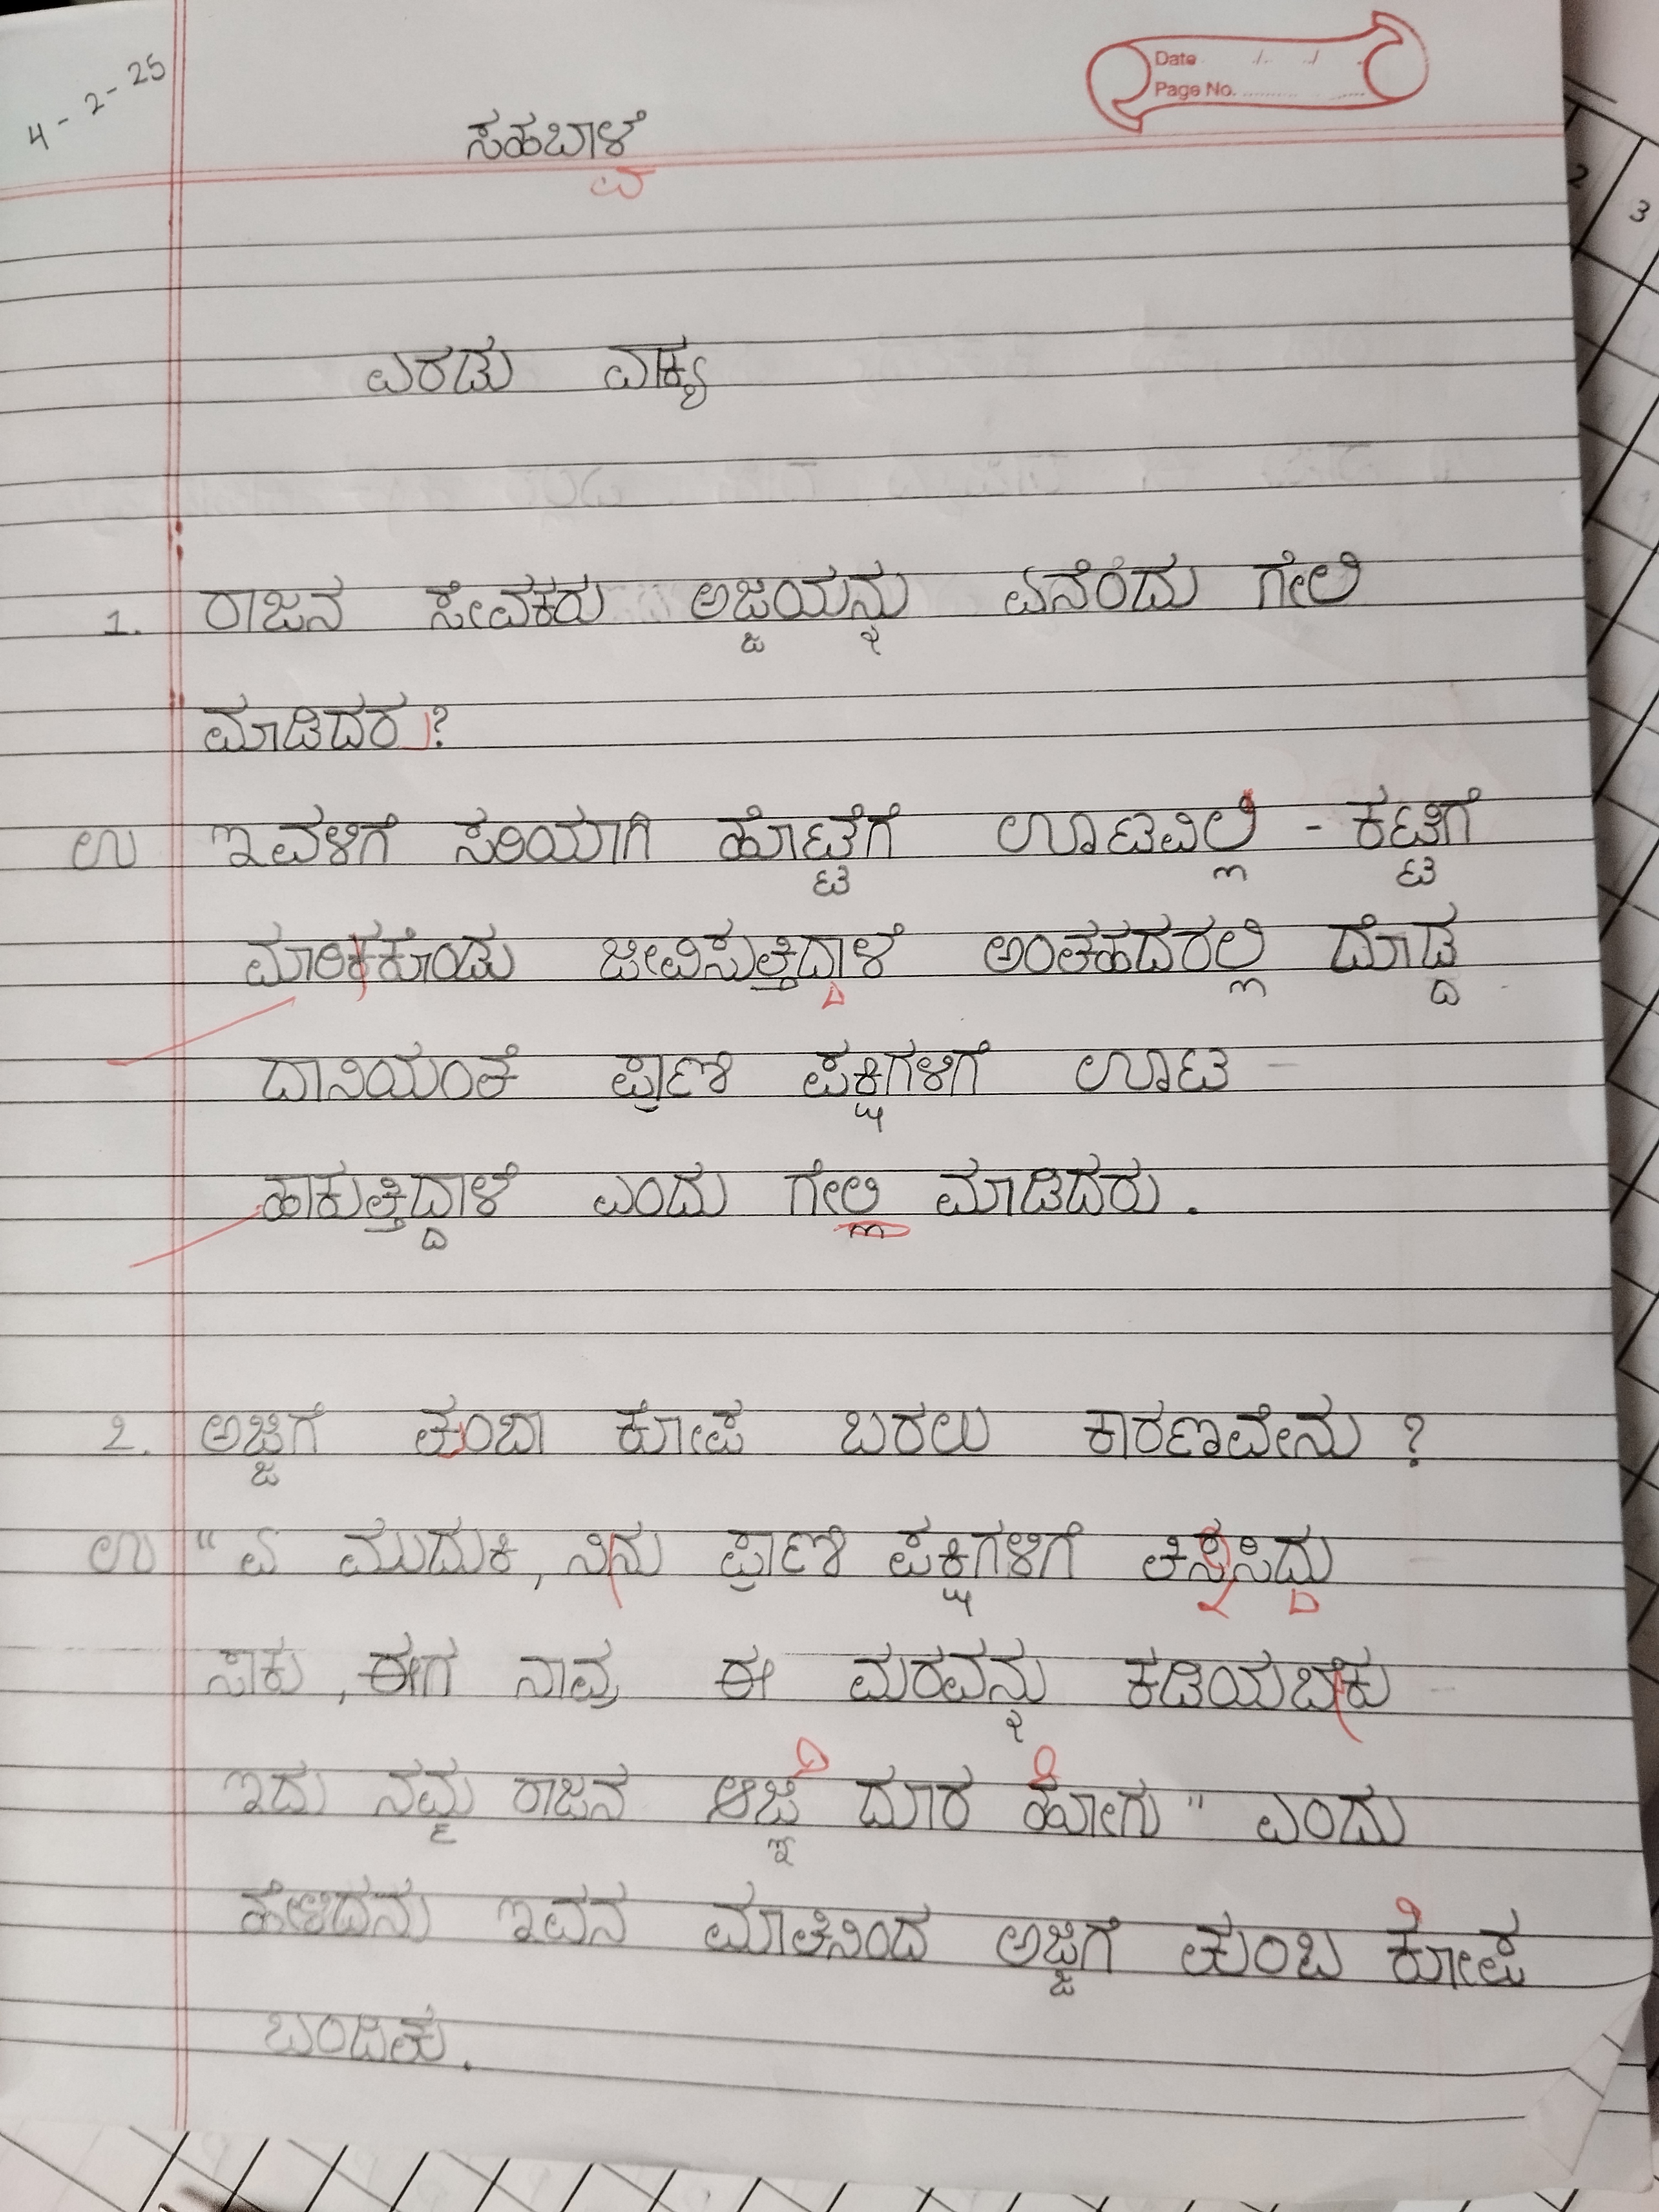 4-2-25
Date / /
Page No.
ಸಹಬಾಳೆ
ವ
ಎರಡು ವಾಕ್ಯ
1. ರಾಜನ ಸೇವಕರು ಅಜ್ಜಿಯನ್ನು ಏನೆಂದು ಗೇಲಿ
ಮಾಡಿದರು?
ಉ ಇವಳಿಗೆ ಸರಿಯಾಗಿ ಹೊಟ್ಟೆಗೆ ಊಟವಿಲ್ಲ - ಕಟ್ಟಿಗೆ
ಮಾರಿಕೊಂಡು ಜೀವಿಸುತ್ತಿದ್ದಾಳೆ ಅಂತಹದರಲ್ಲಿ ದೊಡ್ಡ
ದಾನಿಯಂತೆ ಪ್ರಾಣಿ ಪಕ್ಷಿಗಳಿಗೆ ಊಟ -
ಹಾಕುತ್ತಿದ್ದಾಳೆ ಎಂದು ಗೇಲ್ಲಿ ಮಾಡಿದರು.
2. ಅಜ್ಜಿಗೆ ತುಂಬಾ ಕೋಪ ಬರಲು ಕಾರಣವೇನು ?
ಉ " ಏ ಮುದುಕಿ, ನೀನು ಪ್ರಾಣಿ ಪಕ್ಷಿಗಳಿಗೆ ತಿನ್ನಿಸಿದ್ದು
ಸಾಕು, ಈಗ ನಾವು ಈ ಮರವನ್ನು ಕಡಿಯಬೇಕು -
ಇದು ನಮ್ಮ ರಾಜನ ಆಜ್ಞೆ ದೂರ ಹೋಗು" ಎಂದು
ಹೇಳಿದನು ಇವನ ಮಾತಿನಿಂದ ಅಜ್ಜಿಗೆ ತುಂಬ ಕೋಪ
ಬಂದಿತು.
2
3